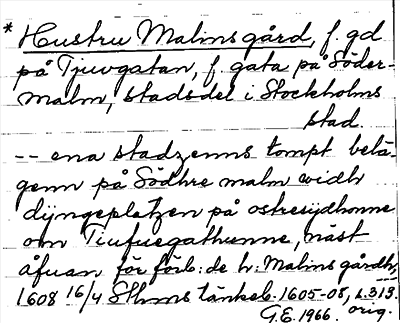 * Hustru Malins gård, f. gd
på Tjuvgatan, f. gata på Söder-
malm, stadsdel i Stockholms
stad.
-- ena stadzenns tompt belä-
genn på Södhre malm widh
dijngeplatzen på ostresijdhonne
om Tiufuegathunne, näst
åfuan för förb:de h: Malins gårdh,
1608 16/4 Sthms tänkeb. 1605-08, s. 313.
G.E. 1966. orig.